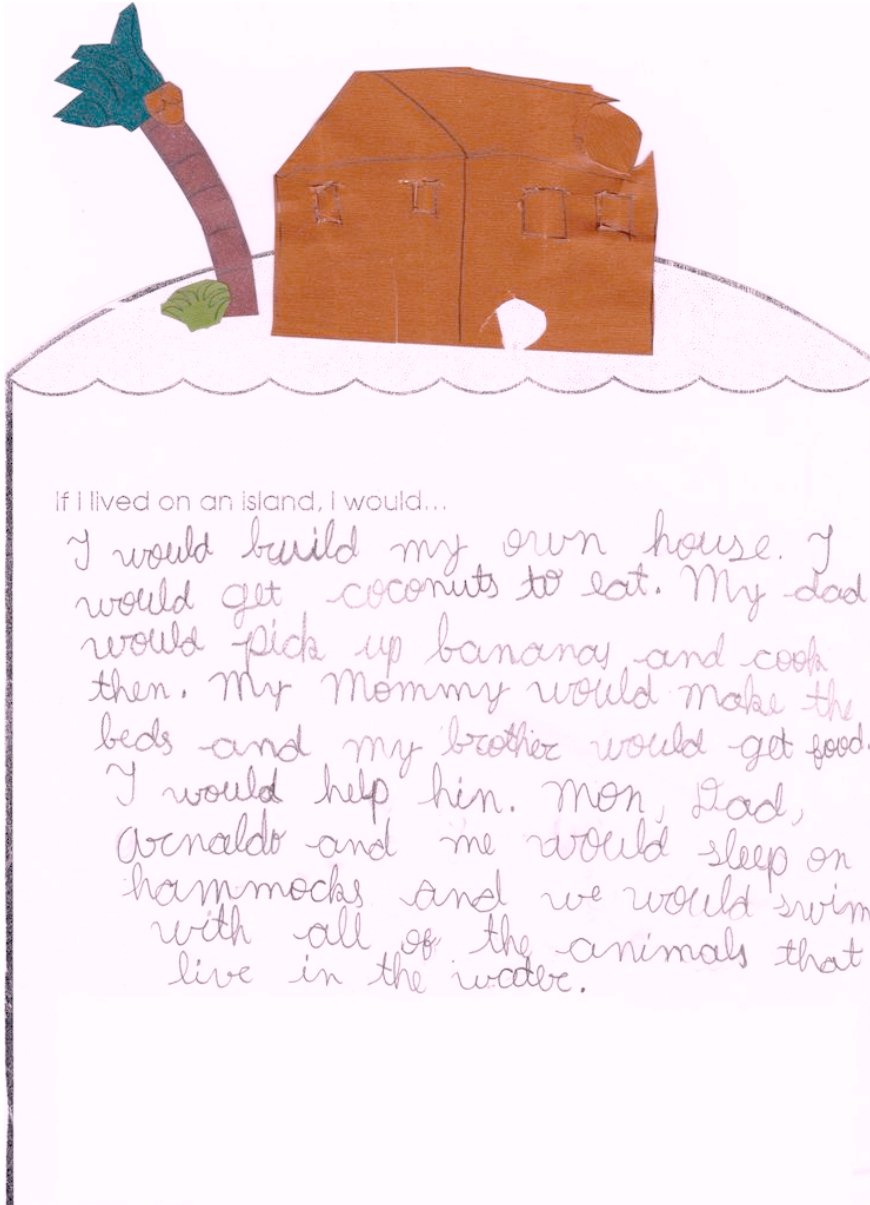 If I lived on an island, I would...
I would build my own house. I
would get coconuts to eat. My dad
would pick up bananas and cook
then. My Mommy would make the
beds and my brother would get food.
I would help hin. Mon, Dad,
Arnaldo and me would sleep on
hammocks and we would swim
with all of the animals that
live in the water.